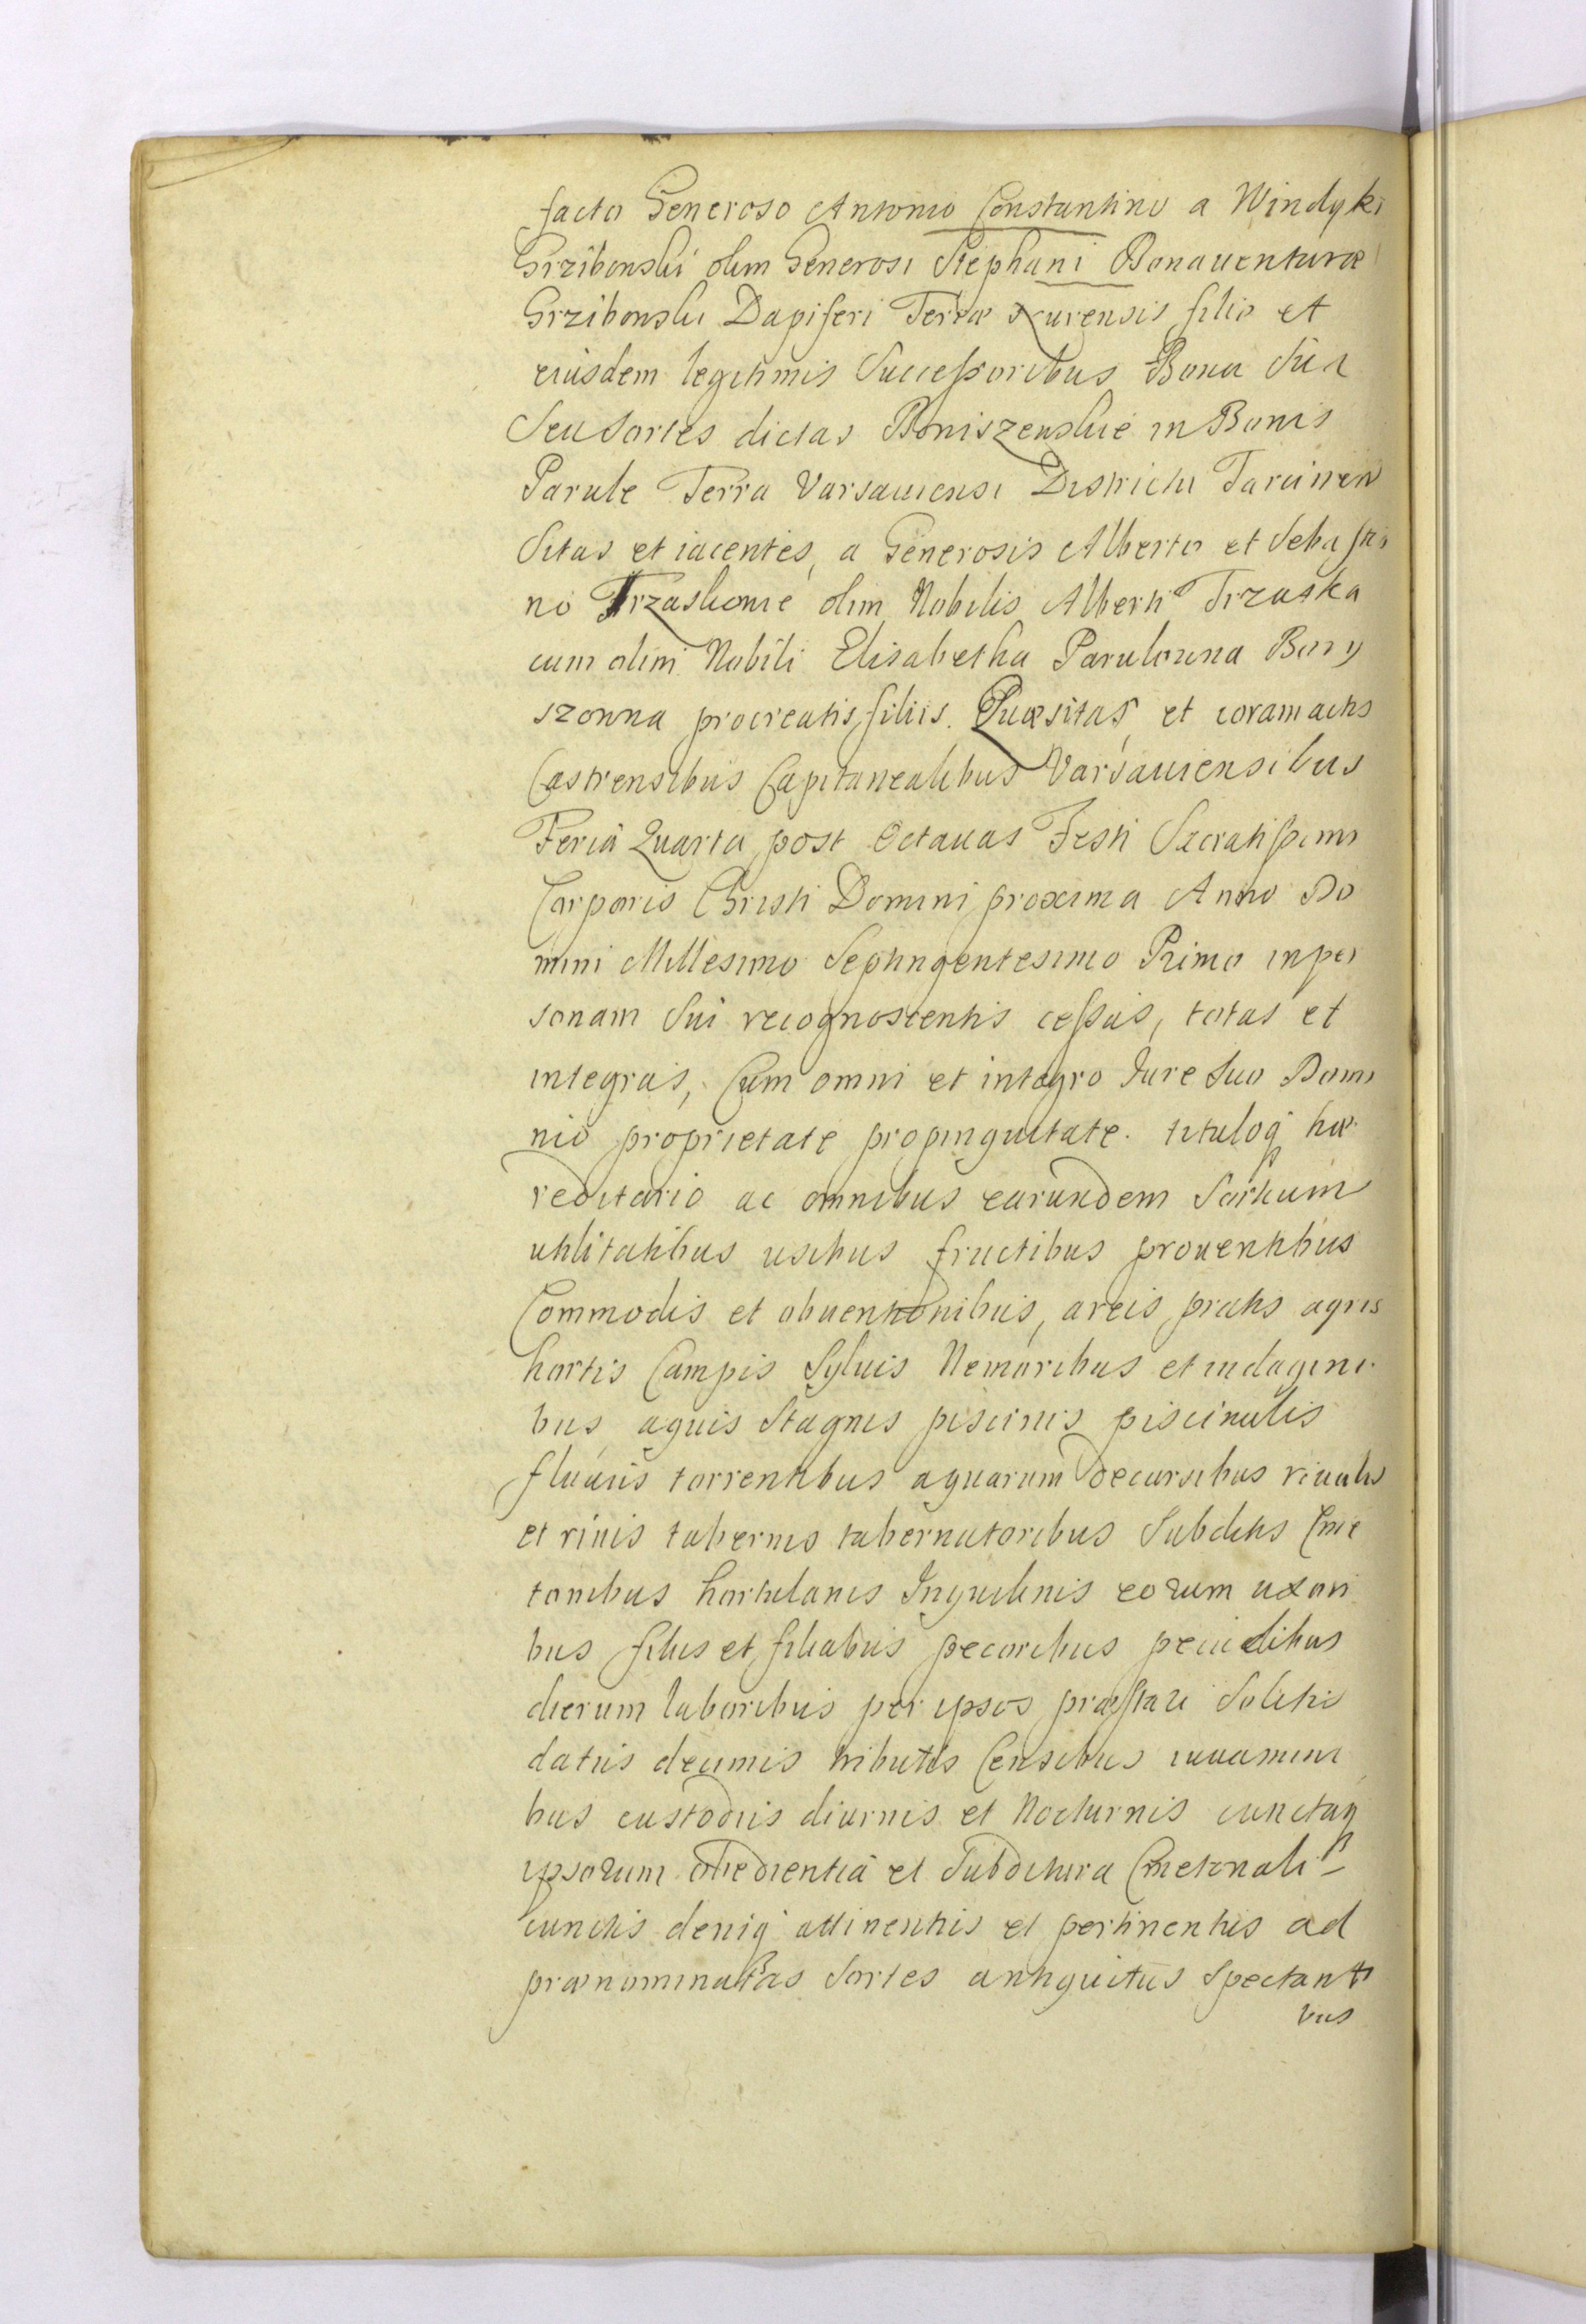 facto Generoso Antonio Constantino a Windyki
Grzibowski olim Generosi Stephani Bonauenturæ
Grzibowski Dapiferi Terræ Nurensis filio et
eiusdem legitimis Successoribus Bona Sua
Seu Sortes dictas Boniszewskie in Bonis
Parule Terra Varsauiensi Districtu Tarcinen
Sitas et iacentes, a Generosis Alberto et Sebastia
no Trzaskowie olim Nobilis Alberti Trzaska
cum olim Nobili Elisabetha Parulowna Bony
szowna procreatis filiis. Quæsitas, et coram actis
Castrensibus Capitanealibus Varsauiensibus
Feria Quarta post Octauas Festi Sacratissimi
Corporis Christi Domini proxima Anno Do
mini Millesimo Septingentesimo Primo in per
sonam Sui recognoscentis cessas, totas et
integras, Cum omni et integro Jure Suo Domi
nio proprietate propinquitate. tituloq hæ
reditario ac omnibus earundem Sortium
utilitatibus usibus fructibus prouentibus
Commodis et obuentionibus, areis pratis agris
hortis Campis Syluis Nemoribus et indagini
bus, aquis Stagnis piscinis piscinulis
fluuiis torrentibus aquarum decursibus riuulis
et riuis tabernis tabernatoribus Subditis Cme
tonibus hortulanis Inquilinis eorum uxori
bus filiis et filiabus pecoribus pecudibus
dierum laboribus per ipsos præstari Solitis
datiis decimis tributis Censibus iuuamini
bus custodiis diurnis et Nocturnis cunctaq
ipsorum obedientia et Subditura Cmetonali
cunctis deniq attinentiis et pertinentiis ad
prænominatas Sortes antiquitus Spectanti
bus